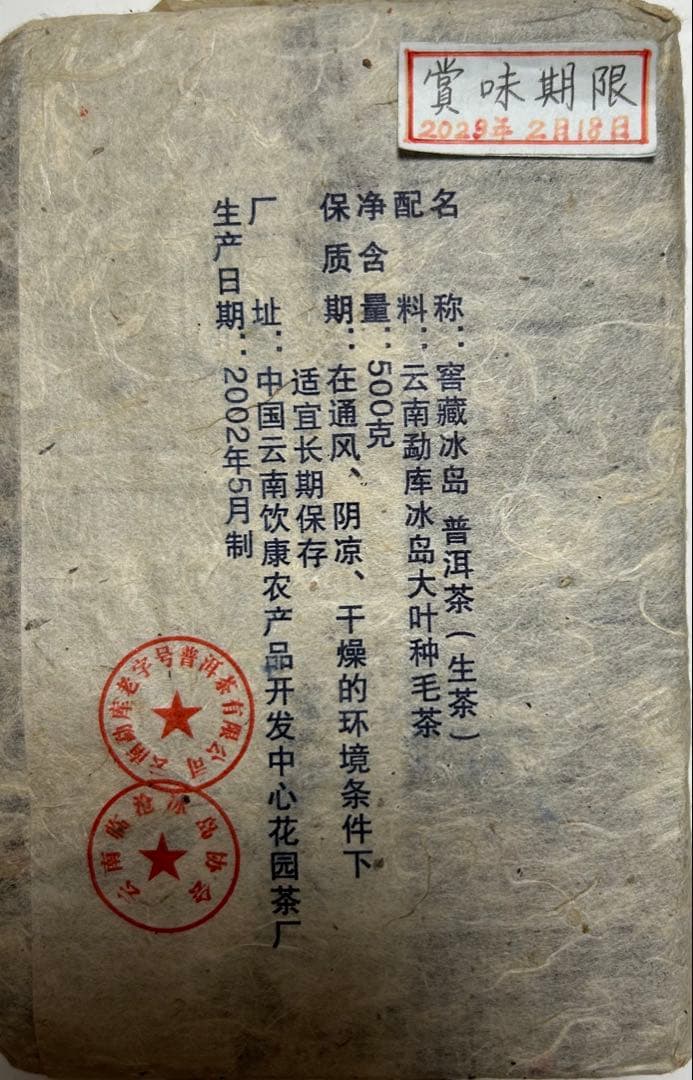 賞味期限
2029年2月18日
名称：窖藏冰岛 普洱茶（生茶）
配料：云南勐库冰岛大叶种毛茶
净含量：500克
保质期：在通风、阴凉、干燥的环境条件下
适宜长期保存
厂址：中国云南饮康农产品开发中心花园茶厂
生产日期：2002年5月制
云南勐库老字号普洱茶有限公司
云南临沧冰岛协会